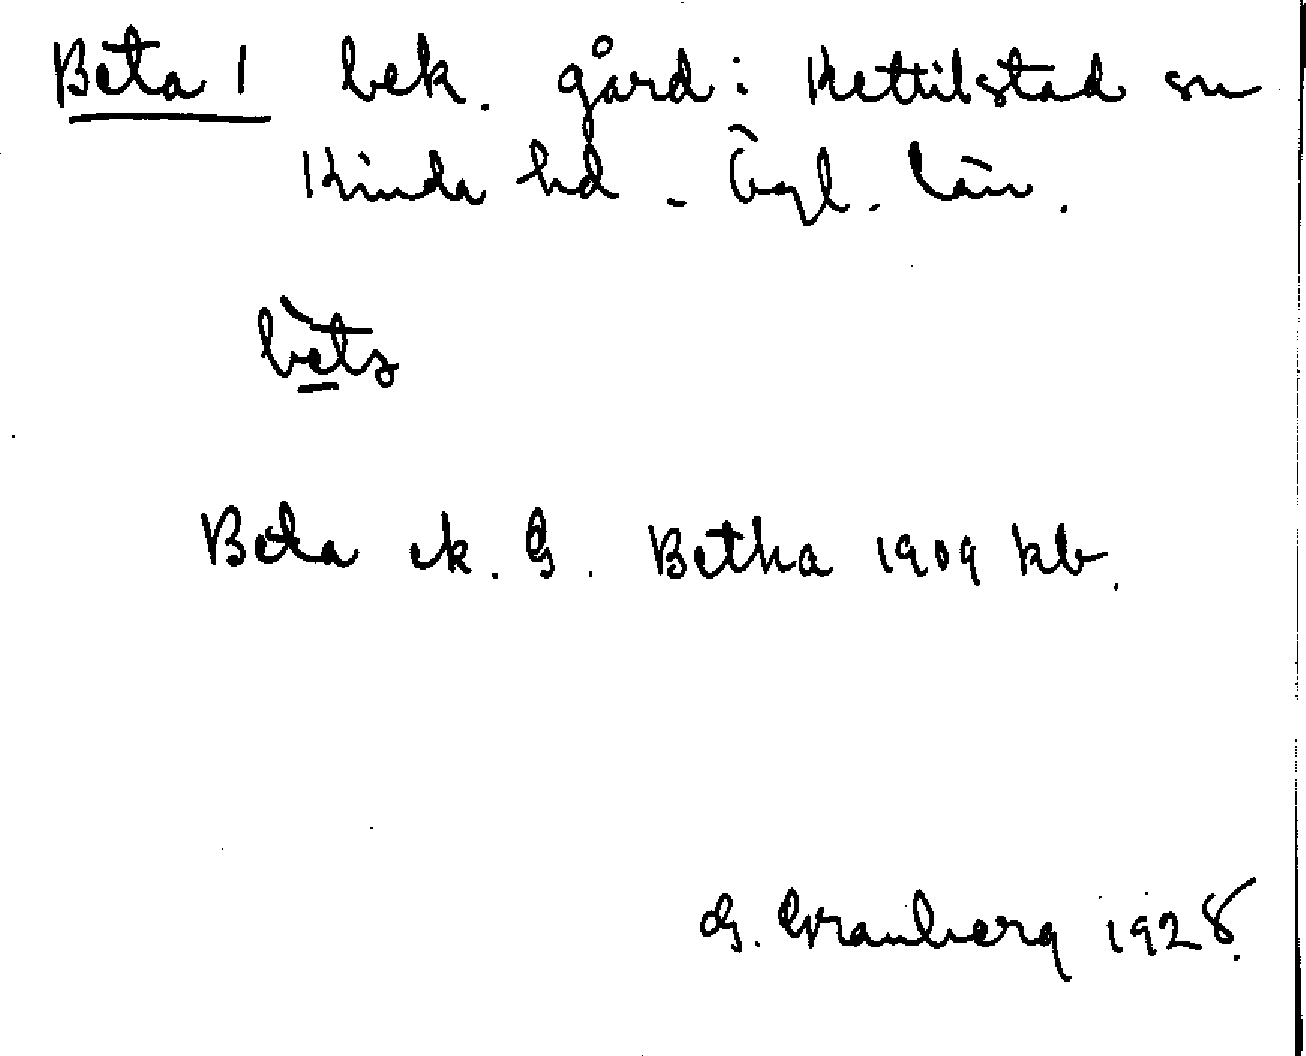 Beta 1 bek. gård: Kettilstad sn
Kinda hd - Ögl. län.
bèta
Beta ek. G. Betha 1909 kb.
G. Granberg 1928.